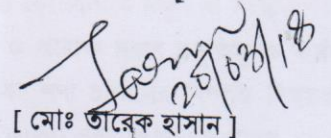 20/03/18
[ মোঃ তারেক হাসান ]